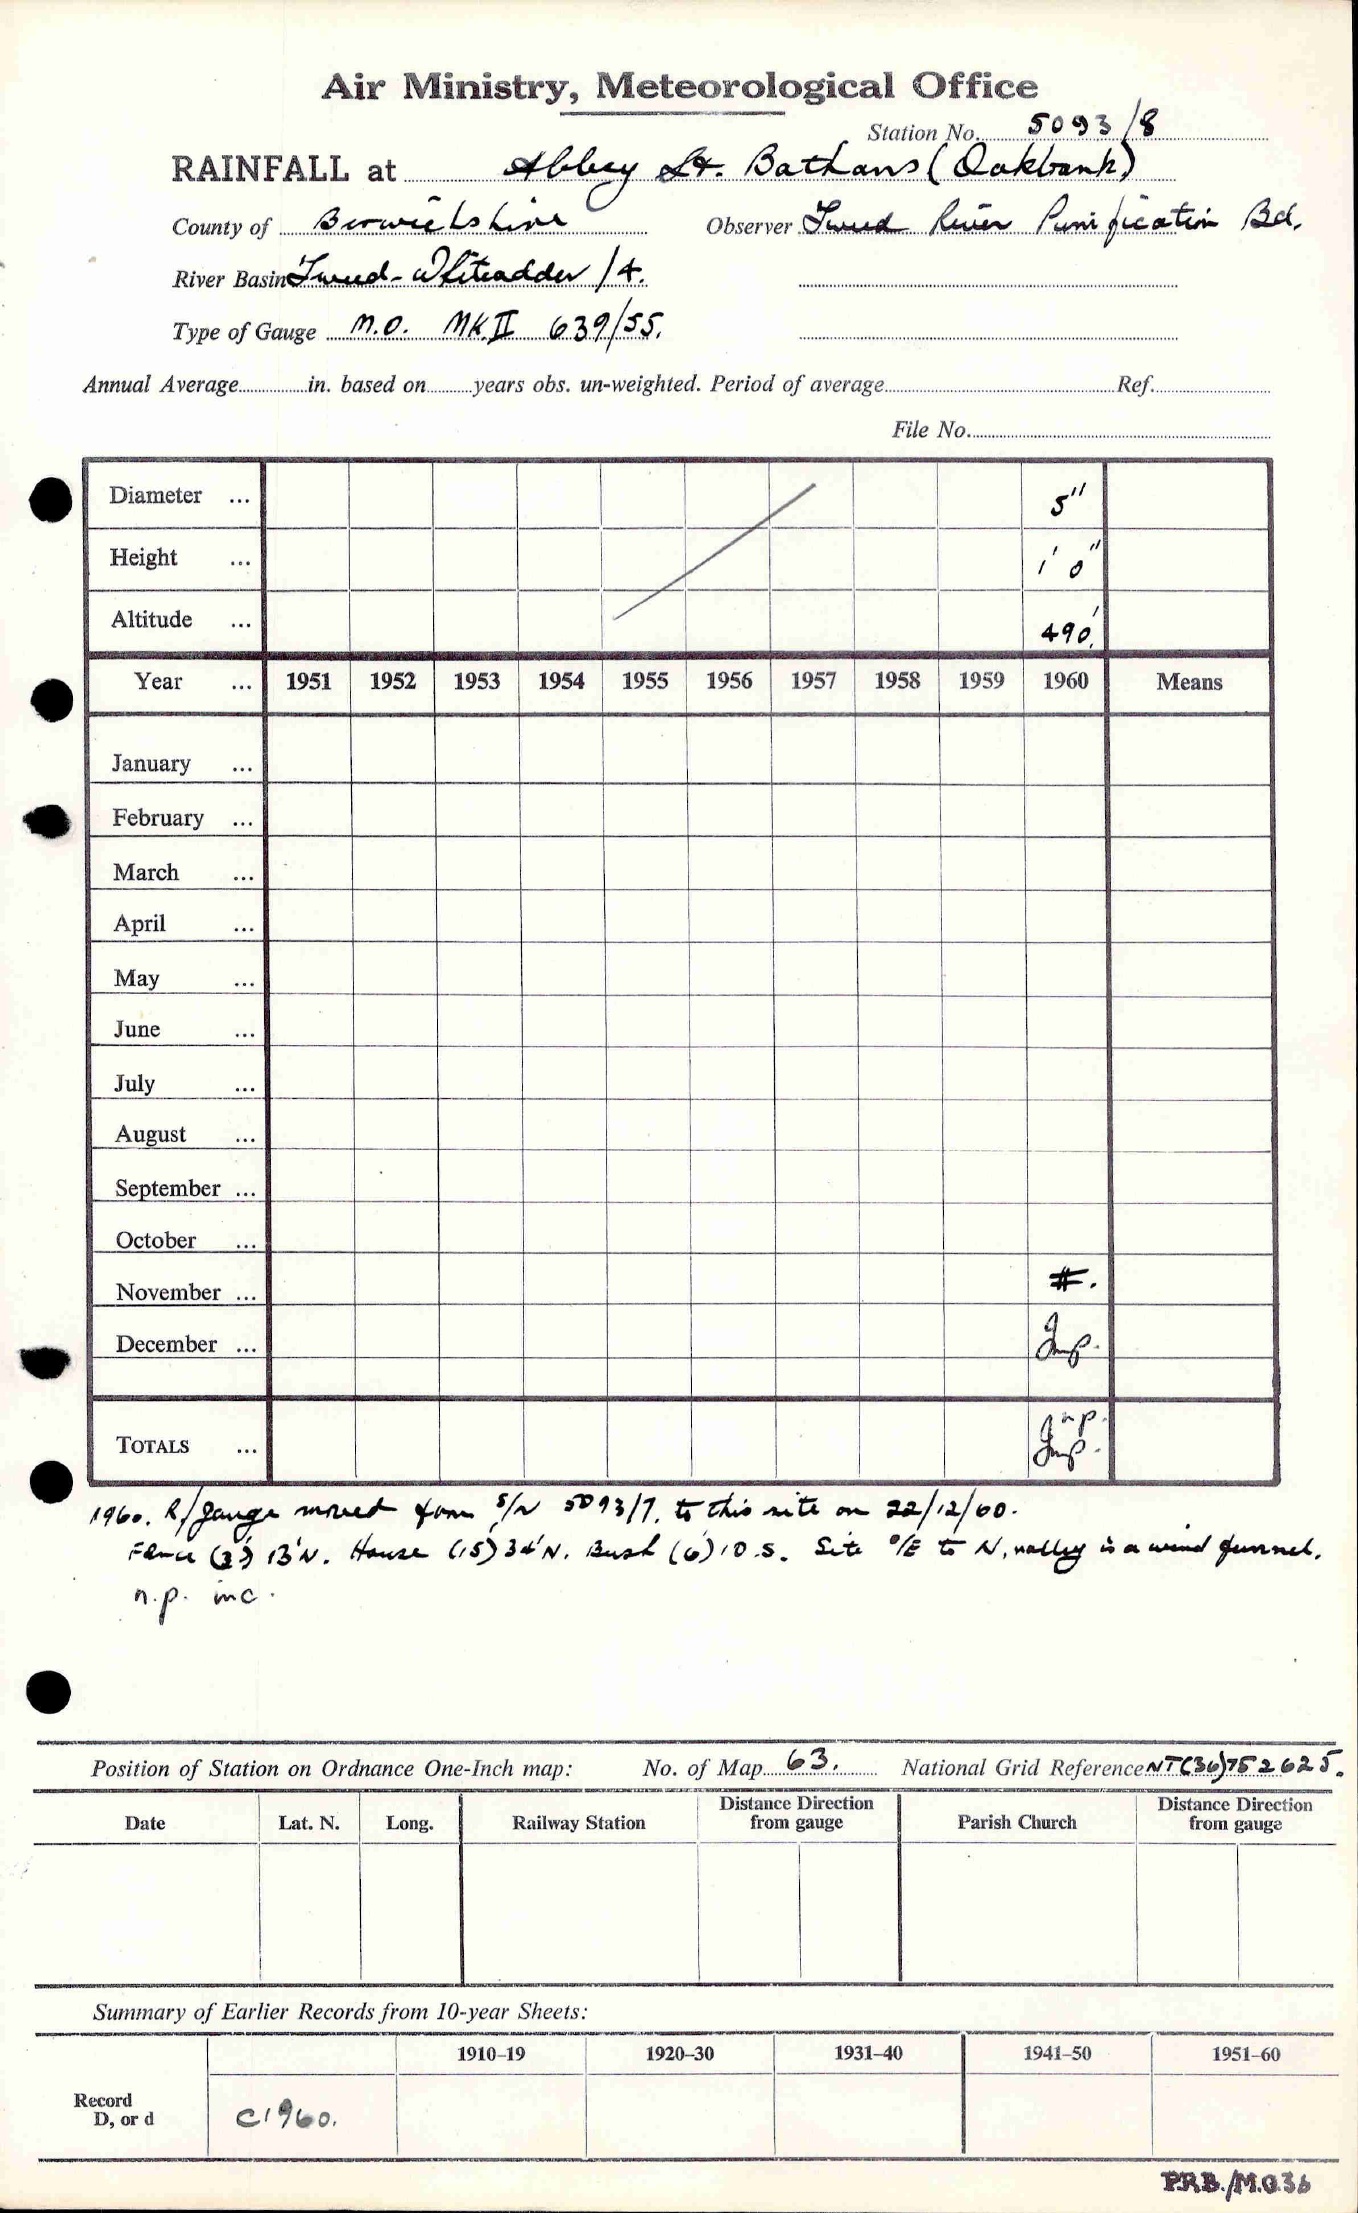 Air Ministry, Meteorological Office
Station No. 5093/8
RAINFALL at Abbey St. Bathans (Oakbank)
County of Berwickshire Observer Tweed River Purification Bd.
River Basin Tweed-Whiteadder /4.
Type of Gauge M.O. MK.II 639/55.
Annual Average in. based on years obs. un-weighted. Period of average Ref.
File No.
Diameter ... 5"
Height ... 1' 0"
Altitude ... 490'
Year ... 1951 1952 1953 1954 1955 1956 1957 1958 1959 1960 Means
January ...
February ...
March ...
April ...
May ...
June ...
July ...
August ...
September ...
October ...
November ... #.
December ... Imp.
TOTALS ... n.p. Imp.
1960. R/gauge moved from S/N 5093/7. to this site on 22/12/60.
Fence (3') 13'N. House (15) 34'N. Bush (6) 10.S. Site O/E to N, valley is a wind funnel.
n.p. inc.
Position of Station on Ordnance One-Inch map: No. of Map 63. National Grid Reference NT(36)752625.
Date Lat. N. Long. Railway Station Distance Direction from gauge Parish Church Distance Direction from gauge
Summary of Earlier Records from 10-year Sheets:
1910–19 1920–30 1931–40 1941–50 1951–60
Record
D, or d C1960.
P.R.B./M.O.36